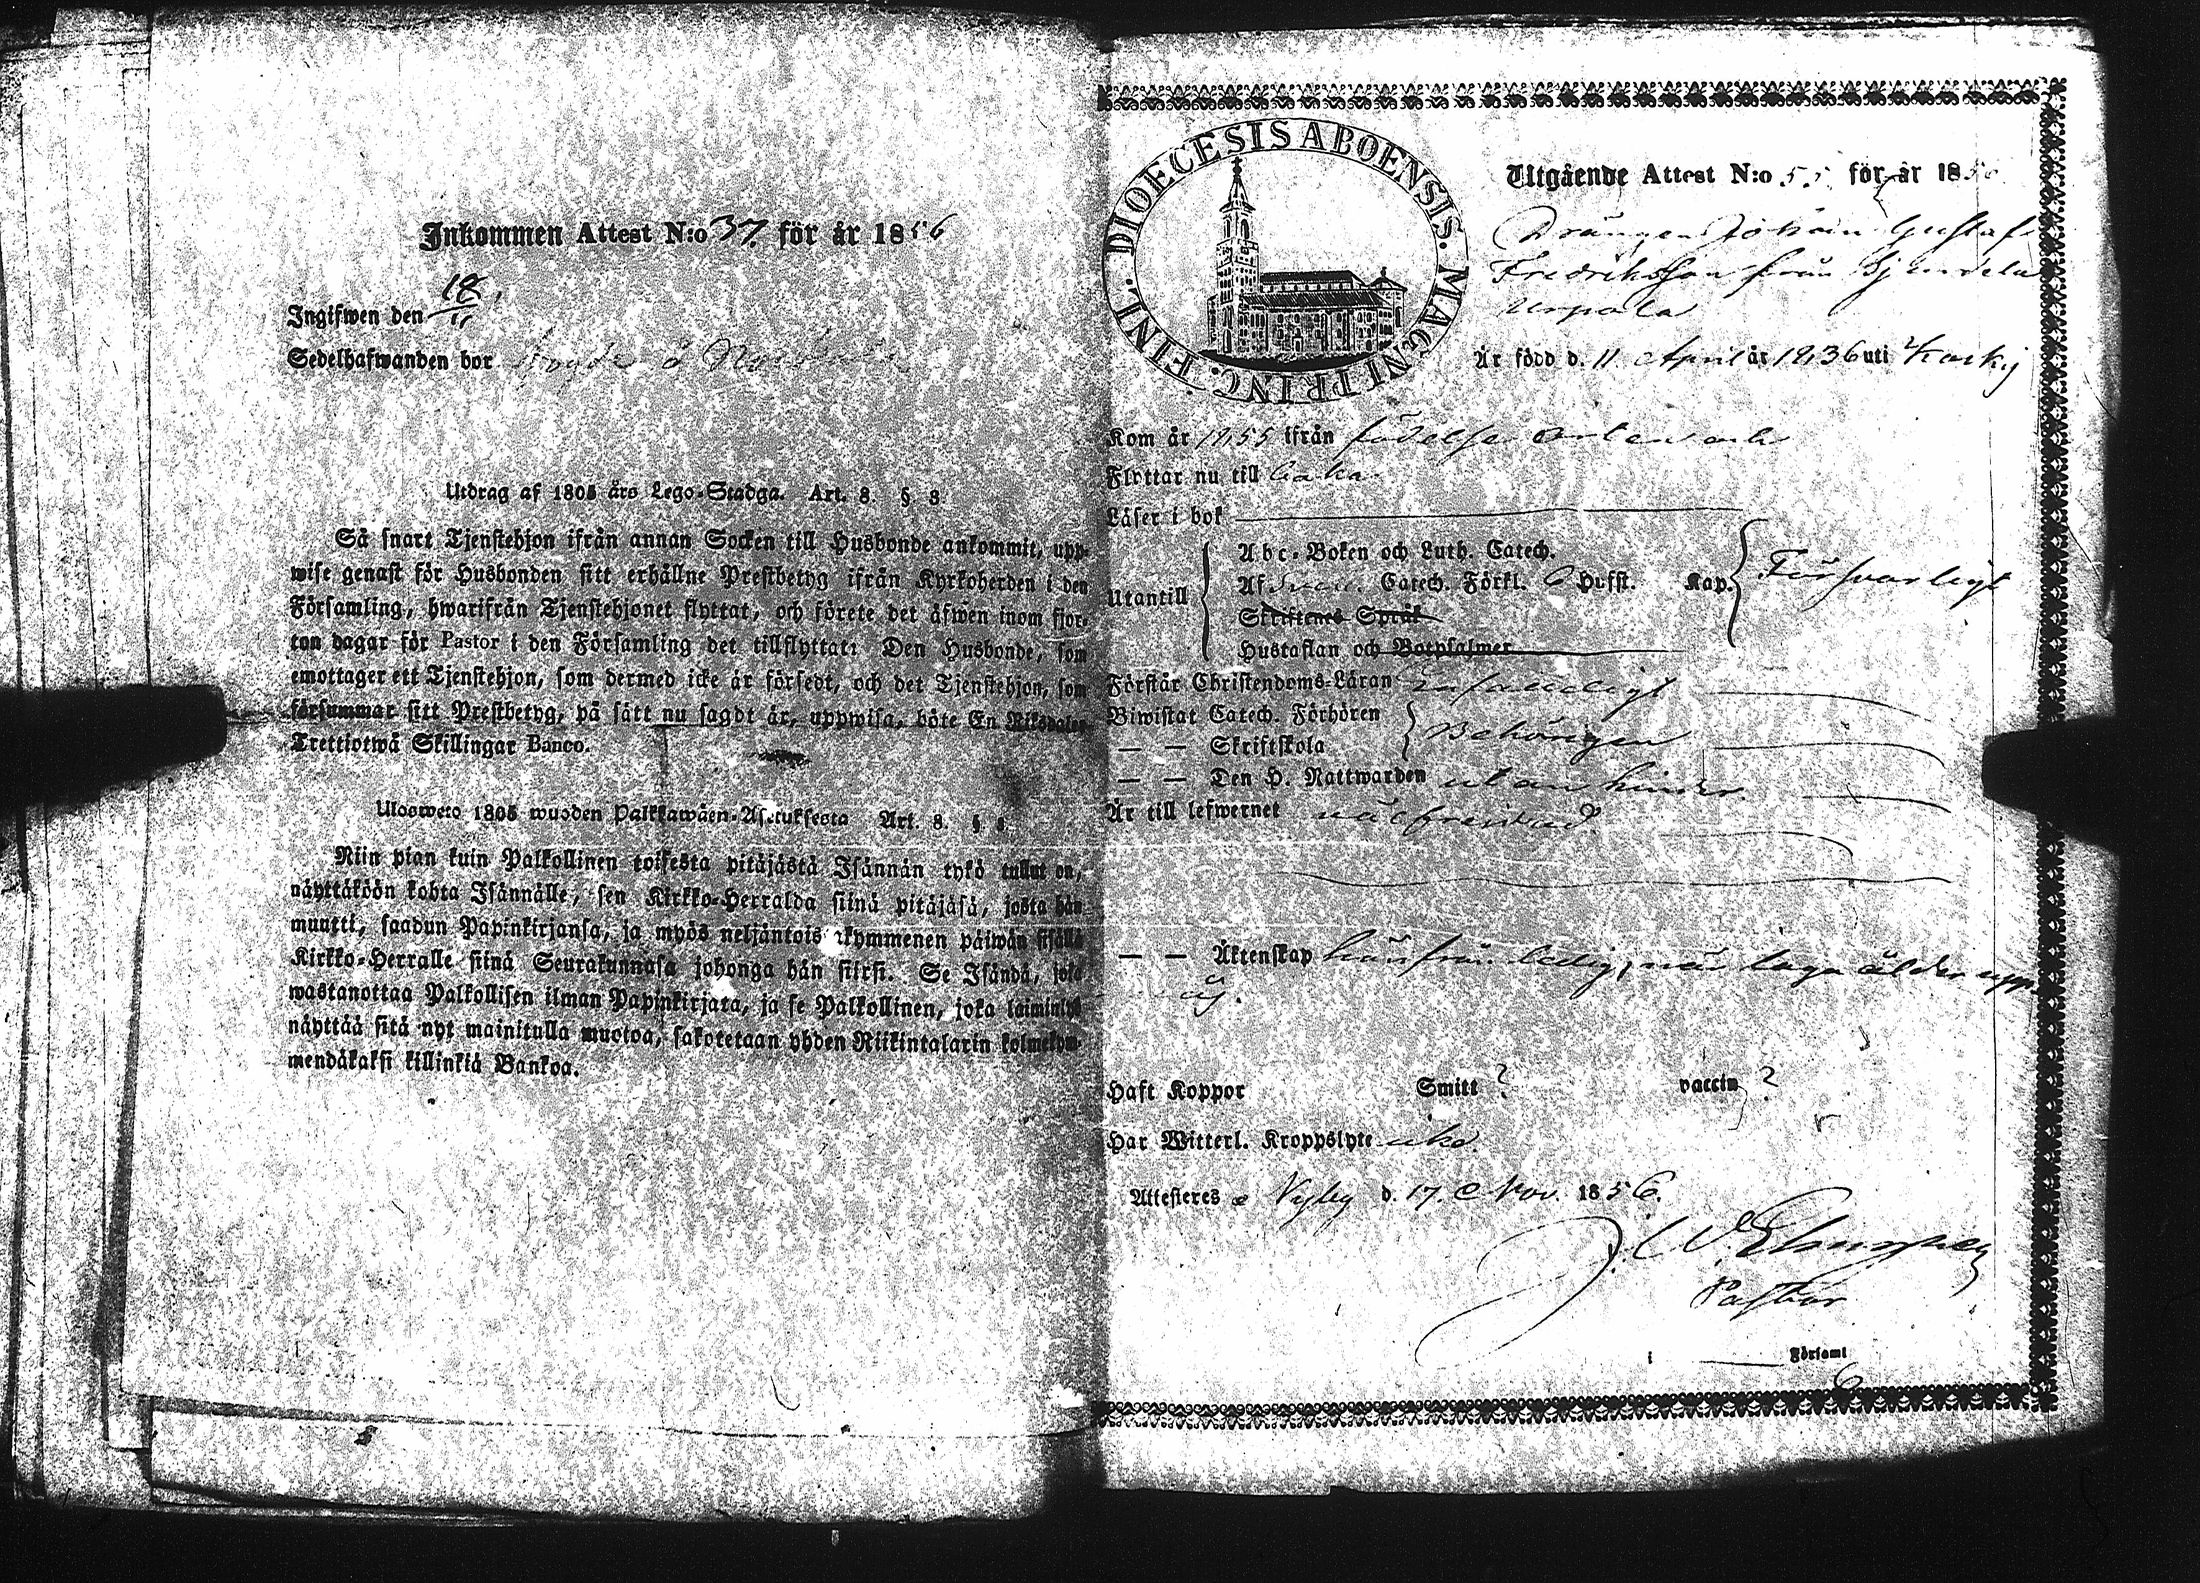 Inkommen Attest N:o 37. för år 1856
Ingifwen den 18/11
Sedelhafwanden bor
Utdrag af 1805 års Lego-Stadga. Art. 8. § 8.
Så snart Tjenstehjon ifrån annan Socken till Husbonde ankommit, upp-
wise genast för Husbonden sitt erhållne Prestbetyg ifrån Kyrkoherden i den
Församling, hwarifrån Tjenstehjonet flyttat, och förete det äfwen inom fjor-
ton dagar för Pastor i den Församling det tillflyttat: Den Husbonde, som
emottager ett Tjenstehjon, som dermed icke är försedt, och det Tjenstehjon, som
försummar sitt Prestbetyg, på sätt nu sagdt är, uppwisa, böte En Riksdaler
Trettiotwå Skillingar Banco.
Ulosweto 1805 wuoden Palkkawäen-Asetuksesta Art. 8. § 8.
Niin pian kuin Palkollinen toisesta pitäjästä Isännän tykö tullut on,
näyttäköön kohta Isännälle, sen Kirkko-Herralda siinä pitäjäsä, josta hän
muutti, saadun Papinkirjansa, ja myös neljäntoistakymmenen päiwän sisällä
Kirkko-Herralle siinä Seurakunnasa johonga hän siirsi. Se Isändä, joka
wastanottaa Palkollisen ilman Papinkirjata, ja se Palkollinen, joka laiminlyö
näyttää sitä nyt mainitulla muotoa, sakotetaan yhden Riikintalarin kolmekym-
mendäkaksi killinkiä Bankoa.
DIOECESIS ABOENSIS. MAGNI PRINC. FINL.
Utgående Attest N:o 55 för år 1856
Drängen Johan Gustaf
Fredriksson från
Är född d. 11 April år 1836 uti Karkij
Kom år 1855 ifrån födelse orten och
Flyttar nu till
Läser i bok
Utantill
Abc-Boken och Luth. Catech.
Af Catech. Förkl. 6 Hufst. Kap.
Försvarligt
Skriftenes Språk
Hustaflan och Botpsalmer
Förstår Christendoms-Läran
Biwistat Catech. Förhören
— — Skriftskola
Behörigen
— — Den H. Nattwarden utan hinder
Är till lefwernet välfrejdad
— — Äktenskap härifrån ledig, när laga ålder
Haft Koppor Smitt ? vaccin ?
Har Witterl. Kroppslyte icke.
Attesteras Nyby d. 17. Nov. 1856.
J. W.
Pastor
i Församl